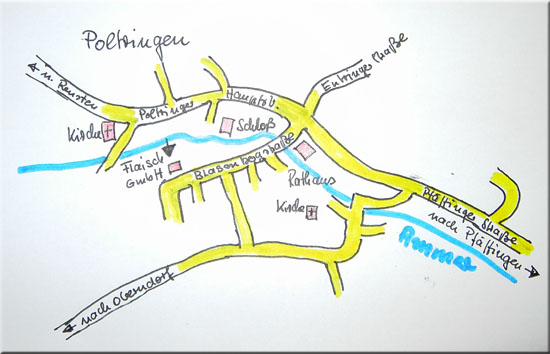 Poltringen
n. Reusten
Poltringer
Hauptstr.
Entringer Straße
Kirche
Schloß
Flaisch
GmbH
Blasenbergstraße
Rathaus
Kirche
Pfäffinger Straße
nach Pfäffingen
Ammer
nach Oberndorf